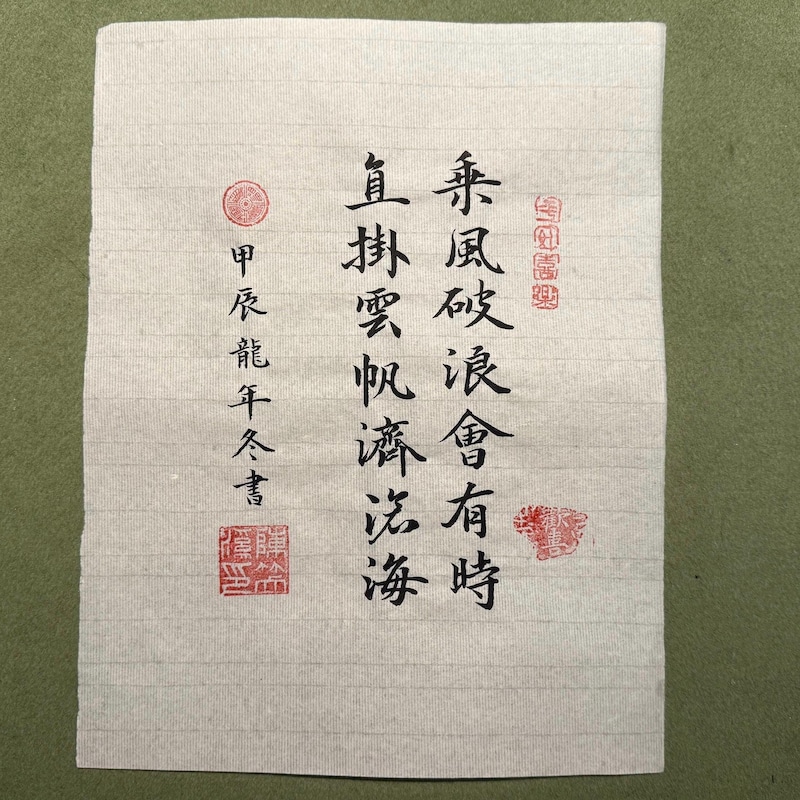 乘風破浪會有時
直掛雲帆濟滄海
甲辰龍年冬書